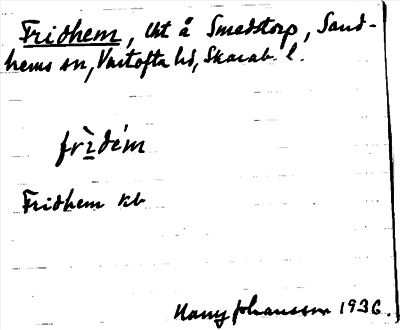 Fridhem, lht å Smedstorp, Sand-
hems sn, Vartofta hd, Skarab. l.
frìdém
Fridhem kb
Harry Johansson 1936.